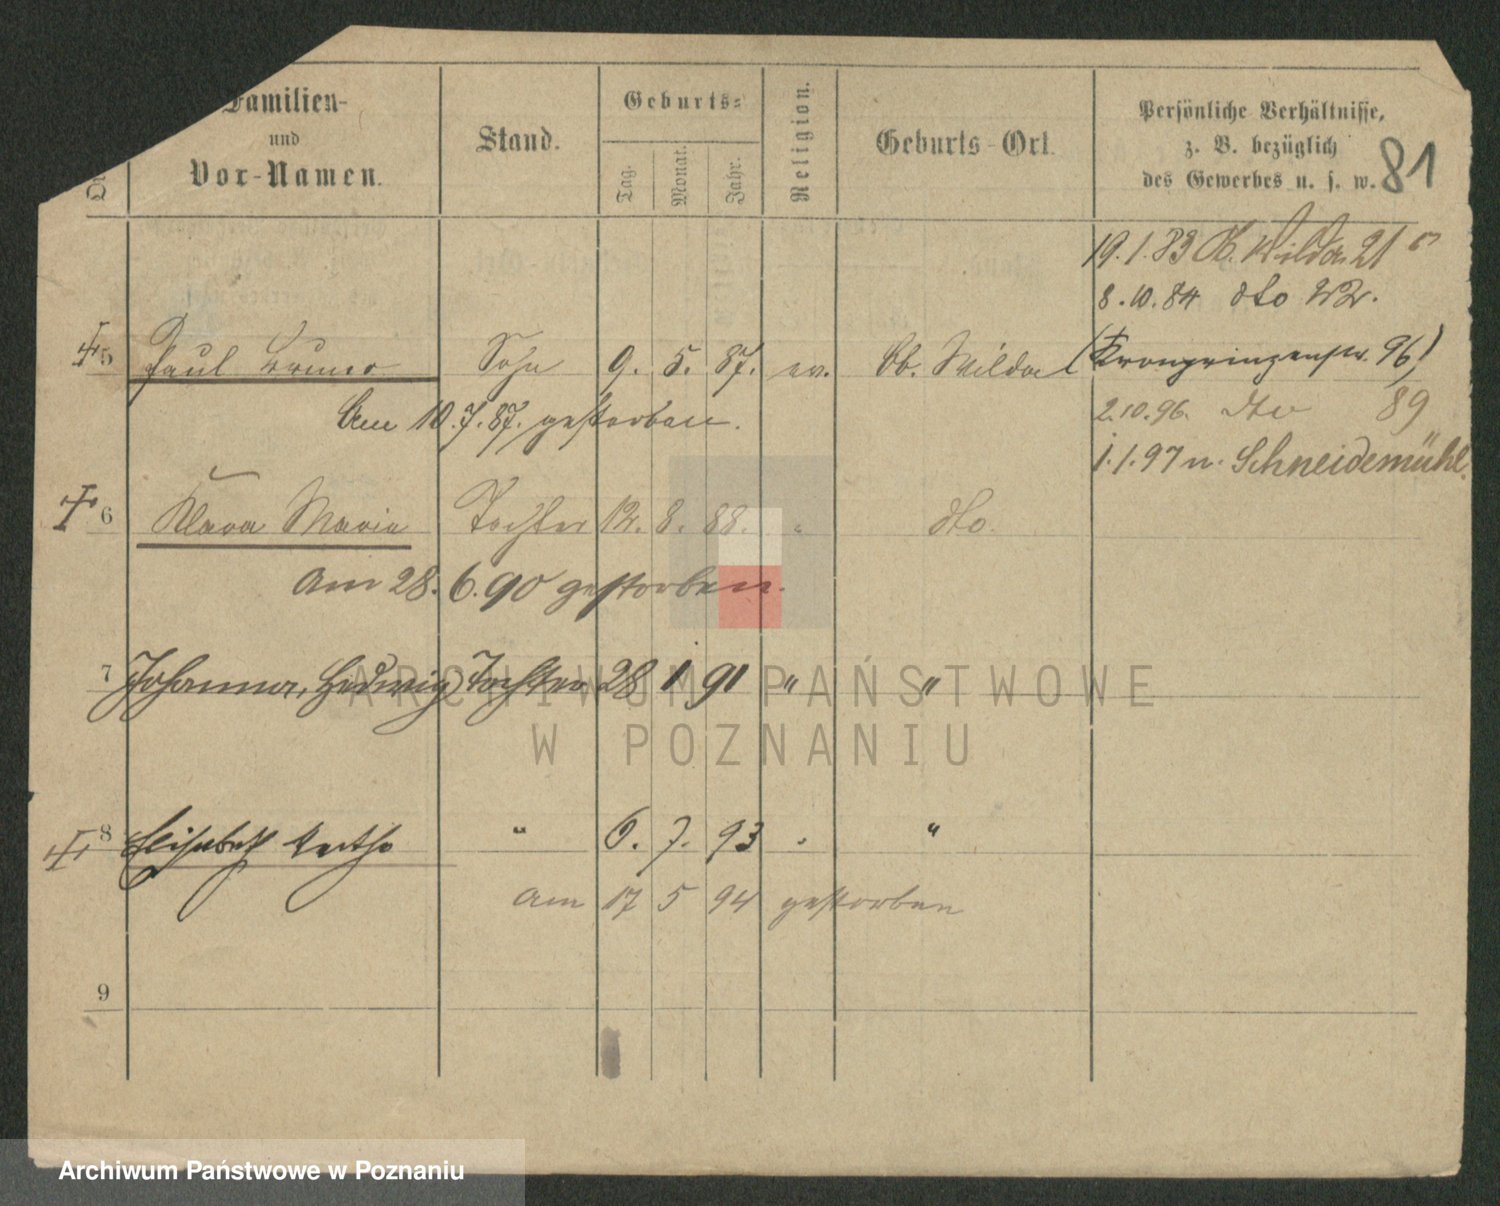 Familien-
und
Vor-Namen.
Stand.
Geburts-
Tag.
Monat.
Jahr.
Religion.
Geburts-Ort.
Persönliche Verhältnisse,
z. B. bezüglich
des Gewerbes u. s. w.
81
19.1.83 O. Wilda 21
8.10.84 dto 22.
5 Paul Bruno Sohn 9. 5. 87. ev. Ob. Wilda (Kronprinzenstr. 96)
Am 10.7.87. gestorben.
2.10.96. dto 89
1.1.97 n. Schneidemühl.
6 Klara Maria Tochter 12. 8. 88. " dto.
Am 28.6.90 gestorben.
7 Johanna, Hedwig Tochter 28 1 91 " "
8 Elisabeth " 6. 7. 93 " "
am 17 5 94 gestorben
9
ARCHIWUM PAŃSTWOWE
W POZNANIU
Archiwum Państwowe w Poznaniu